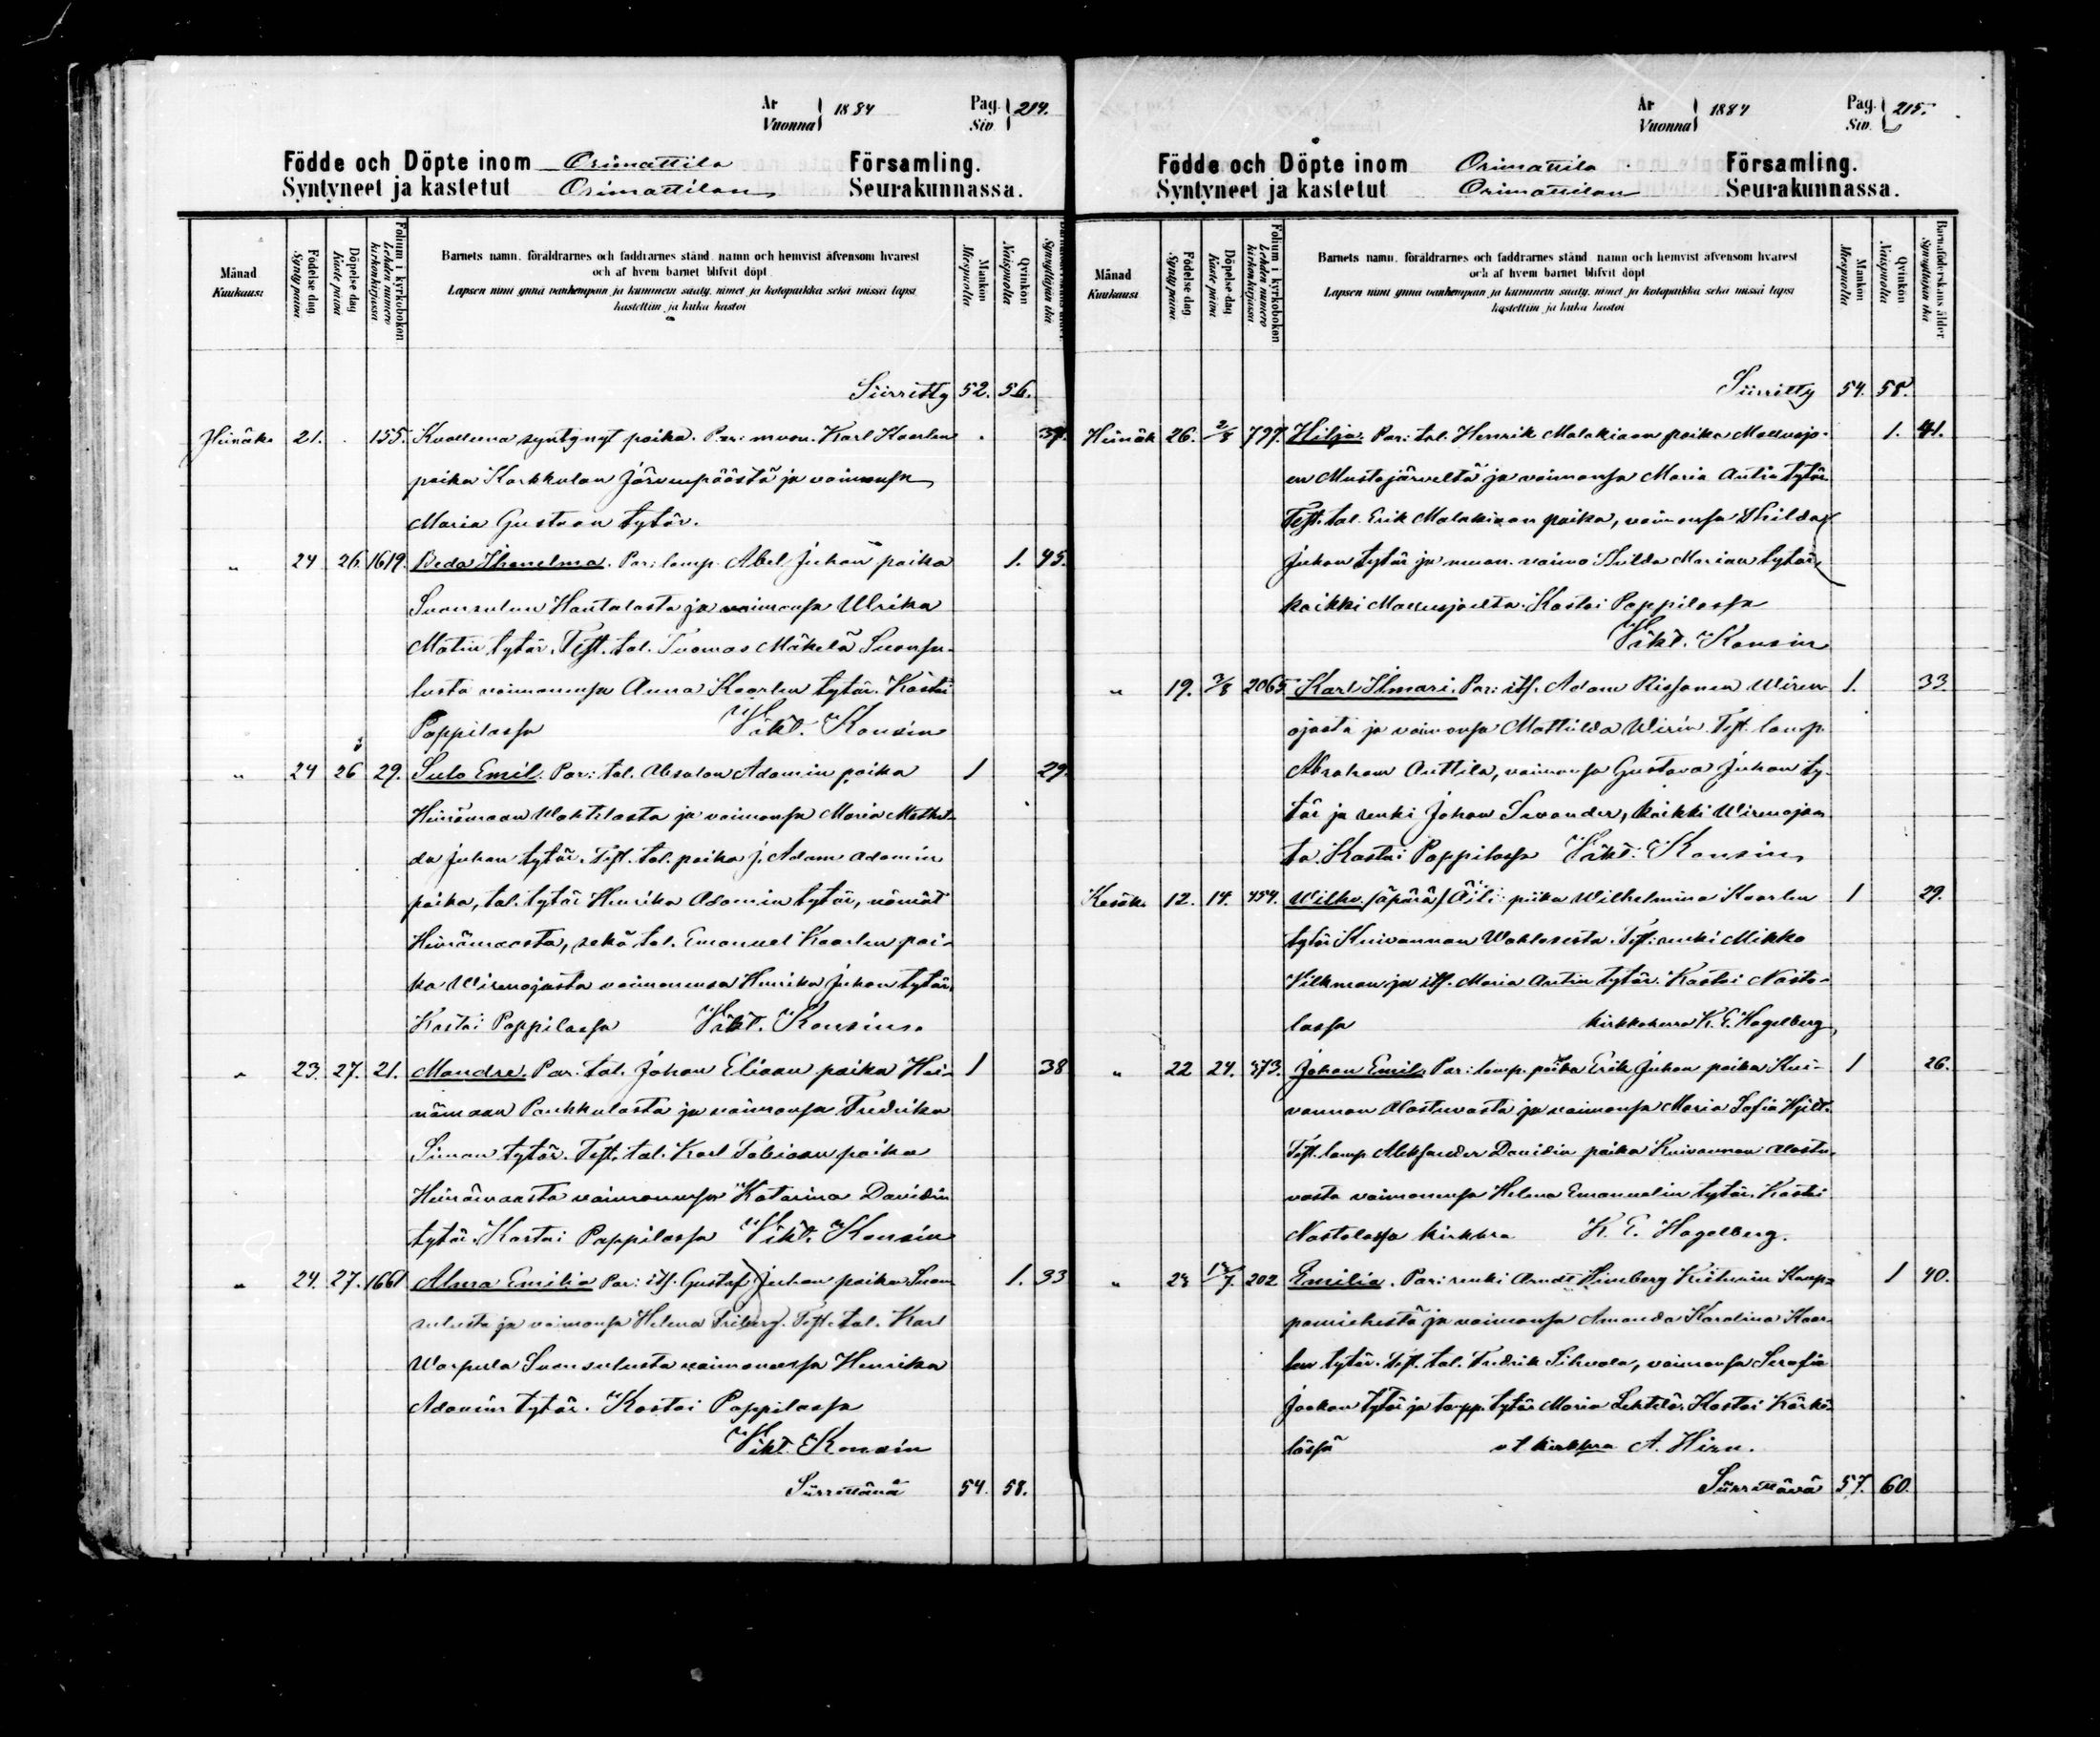 År
Vuonna
1884
Pag.
Siv
214.
Födde och Döpte inom Orimattila Församling.
Syntyneet ja kastetut Orimattilan Seurakunnassa.
Månad
Kuukausi
Födelse dag
Synty päivä
Döpelse dag
Kaste päivä
Folium i kyrkoboken
Lehden numero kirkonkirjassa
Barnets namn, föräldrarnes och faddrarnes stånd, namn och hemvist äfvensom hvarest
och af hvem barnet blifvit döpt
Lapsen nimi ynnä vanhempain ja kummein sääty, nimet ja kotopaikka sekä missä lapsi
kastettiin ja kuka kastoi
Mankön
Miespuolia
Qvinkön
Naispuolia
Siirretty 52. 56.
Heinäk. 21. 155. Kuolleena syntynyt poika. Par: muon. Karl Kaarlen 37.
poika Karkkulan Järvenpäästä ja vaimonsa
Maria Gustaan tytär.
" 24 26 1619. Beda Ihanelma. Par: lamp. Abel Juhan poika 1. 45.
Suonsulun Hantalasta ja vaimonsa Ulrika
Matin tytär. Test. tal. Tuomas Mäkelä Suonsu-
lusta vaimonensa Anna Kaarlen tytär. Kastoi
Pappilassa Vikt. Konsin
" 24 26 29. Sulo Emil. Par: tal. Absalon Adamin poika 1 29.
Heinämaan Wahtilasta ja vaimonsa Maria Mathil-
da Juhan tytär. Test. tal. poika j. Adam Adamin
poika, tal. tytär Henrika Adamin tytär, nämät
Heinämaasta, sekä tal. Emanuel Kaarlen poi-
ka Wirenojasta vaimonensa Henrika Juhan tytär.
Kastoi Pappilassa Vikt. Konsin.
" 23. 27. 21. Mandre. Par. tal. Johan Eliaan poika Hei- 1 38
nämaan Paukkulasta ja vaimonsa Fredrika
Simon tytär. Test. tal. Karl Tobiaan poika
Heinämaasta vaimonensa Katarina Davidin
tytär. Kastoi Pappilassa Vikt. Konsin
" 24. 27. 1661 Alma Emilia Par: its. Gustaf Juhan poika Suon 1. 33
sulusta ja vaimonsa Helena Friberg. Test. tal. Karl
Warpula Suonsulusta vaimonensa Henrika
Adamin tytär. Kastoi Pappilassa
Vikt. Konsin
Siirrettävä 54. 58.
År
Vuonna
1884
Pag.
Siv.
215.
Födde och Döpte inom Orimattila Församling.
Syntyneet ja kastetut Orimattilan Seurakunnassa.
Månad
Kuukausi
Födelse dag
Synty päivä
Döpelse dag
Kaste päivä
Folium i kyrkoboken
Lehden numero kirkonkirjassa
Barnets namn, föräldrarnes och faddrarnes stånd, namn och hemvist äfvensom hvarest
och af hvem barnet blifvit döpt
Lapsen nimi ynnä vanhempain ja kummein sääty, nimet ja kotopaikka sekä missä lapsi
kastettiin ja kuka kastoi
Mankön
Miespuolia
Qvinkön
Naispuolia
Barnaföderskans ålder
Synnyttäjän ikä
Siirretty 54. 58.
Heinäk 26. 2/8 797. Hilja. Par: tal. Henrik Malakiaan poika Mallusjo- 1. 41.
en Mustajärveltä ja vaimonsa Maria Antin tytär
Test. tal. Erik Malakiaan poika, vaimonsa Hilda
Juhan tytär ja muon. vaimo Hilda Marian tytär,
kaikki Mallusjoelta. Kastoi Pappilassa
Vikt. Konsin
" 19. 3/8 2065 Karl Ilmari. Par: its. Adam Rissanen Wiren 1. 33.
ojasta ja vaimonsa Mathilda Wirén. Test. lamp.
Abraham Anttila, vaimonsa Gustava Juhan ty-
tär ja renki Johan Sevander, kaikki Wirenojas
ta Kastoi Pappilassa Vikt. Konsin
Kesäk. 12. 14. 454. Wilho (äpärä) Äiti: piika Wilhelmina Kaarlen 1 29.
tytär Kuivannon Wahlosesta. Test: renki Mikko
Vilkman ja its. Maria Antin tytär. Kastoi Nasto-
lassa kirkkoherra K. E. Hagelberg,
" 22 24. 473. Johan Emil. Par: lamp. poika Erik Juhan poika Kui- 1 26.
vannon Alastuvasta ja vaimonsa Maria Sofia Hjelt.
Test. lamp Aleksander Davidin poika Kuivannon Alastu-
vasta vaimonensa Helena Emanuelin tytär. Kastoi
Nastolassa kirkkra K. E. Hagelberg.
" 28 12/7. 202 Emilia. Par: renki Arndt Himberg Keiturin Kaup- 1 40.
pamichestä ja vaimonsa Amanda Karolina Kaar-
len tytär. Test. tal. Fredrik Sihvola, vaimonsa Serafia
Jaakon tytär ja torpp. tytär Maria Lehtelä. Kastoi Kärkö-
lässä vt kirkkra A. Hirn.
Siirrettävä 57. 60.